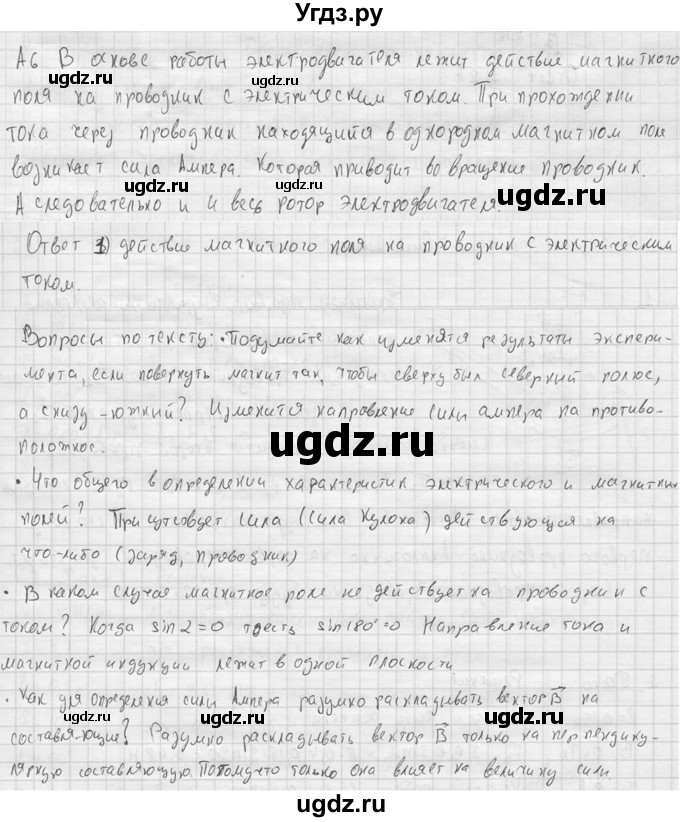 Угдз.ру
А6 В основе работы электродвигателя лежит действие магнитного
поля на проводник с электрическим током. При прохождении
тока через проводник находящийся в однородном магнитном поле
возникает сила Ампера. Которая приводит во вращение проводник.
А следовательно и и весь ротор электродвигателя.
Ответ 1) действие магнитного поля на проводник с электрическим
током.
Вопросы по тексту: • Подумайте как изменятся результаты экспери-
мента, если повернуть магнит так, чтобы сверху был северный полюс,
а снизу - южный? Изменится направление силы ампера на противо-
положное.
• Что общего в определении характеристик электрического и магнитных
полей? Присутсвует сила (сила Кулона) действующая на
что-либо (заряд, проводник)
• В каком случае магнитное поле не действует на проводник с
током? Когда sin2=0 тоесть sin180°=0 Направление тока и
магнитной индукции лежат в одной плоскости
• Как для определения силы Ампера разумно раскладывать вектор B на
составляющие? Разумно раскладывать вектор B только на перпендику-
лярную составляющую. Потомучто только она влияет на величину силы.
ugdz.ru
ugdz.ru
ugdz.ru
ugdz.ru
ugdz.ru
ugdz.ru
ugdz.ru
ugdz.ru
ugdz.ru
ugdz.ru
ugdz.ru
ugdz.ru
ugdz.ru
ugdz.ru